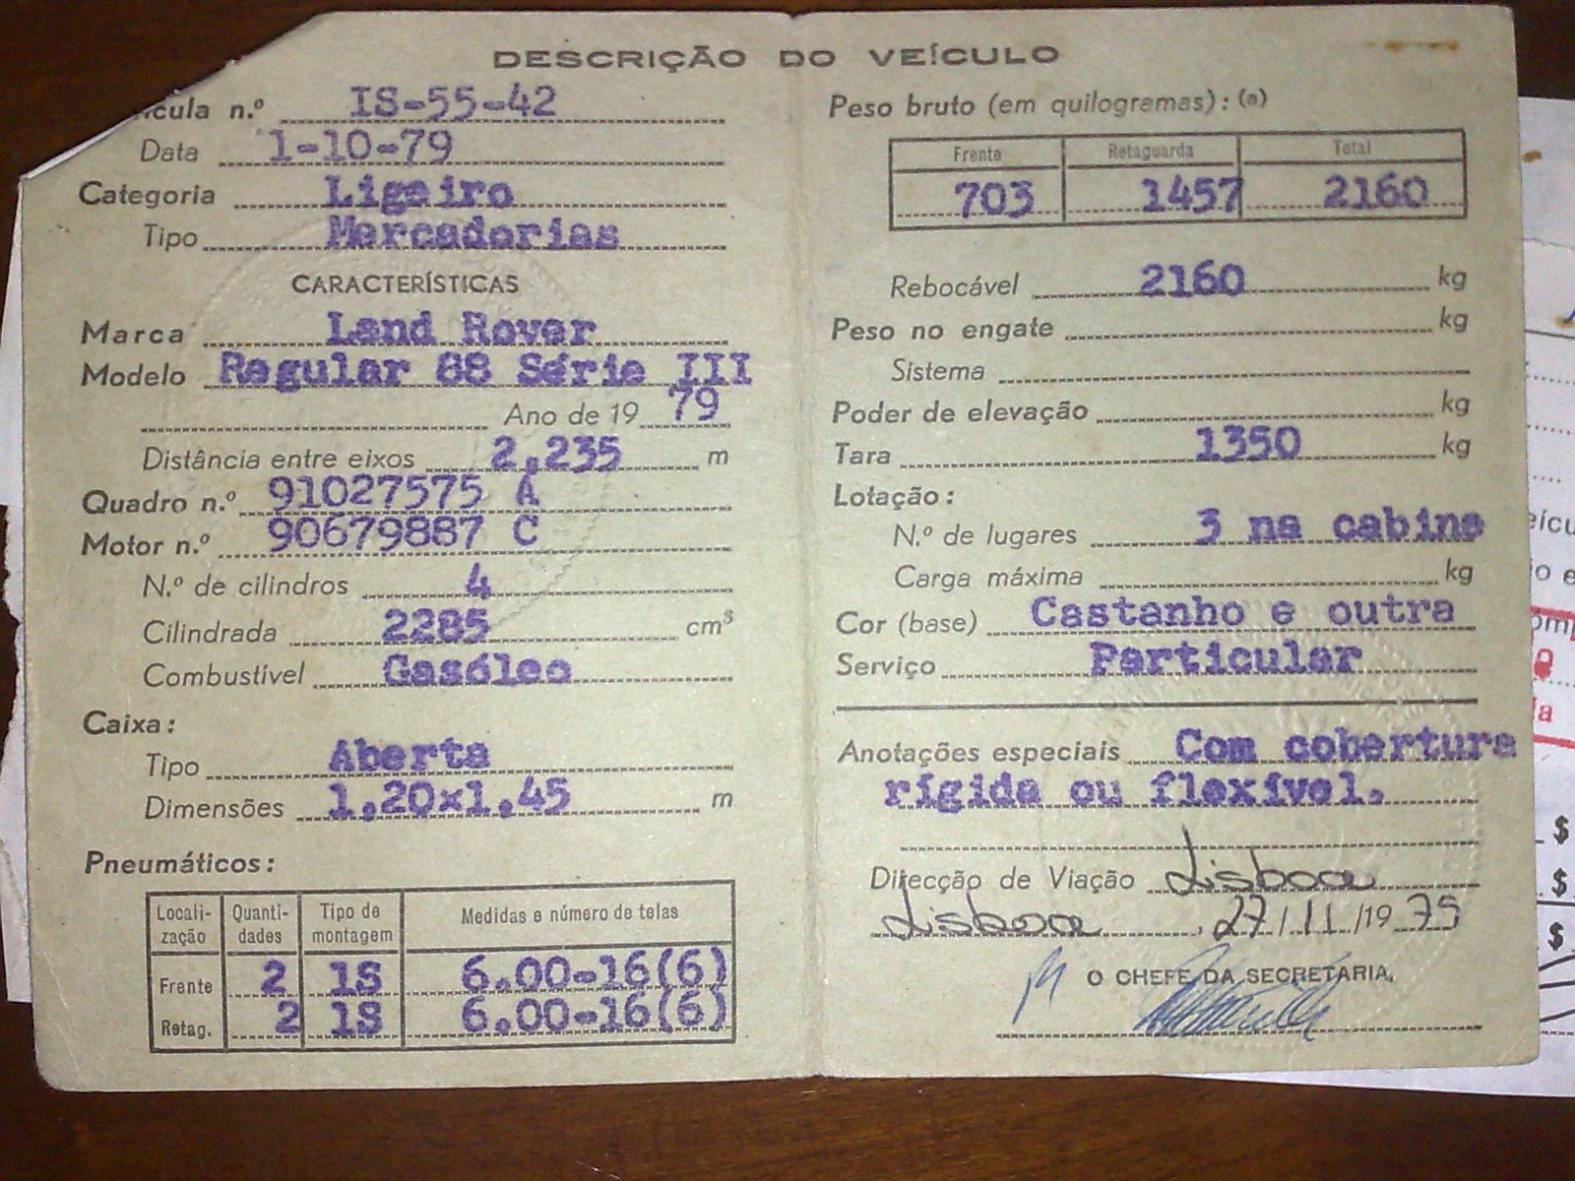 DESCRIÇÃO DO VEÍCULO
ícula n.º IS-55-42
Data 1-10-79
Categoria Ligeiro
Tipo Mercadorias
CARACTERÍSTICAS
Marca Land Rover
Modelo Regular 88 Série III
Ano de 19 79
Distância entre eixos 2,235 m
Quadro n.º 91027575 A
Motor n.º 90679887 C
N.º de cilindros 4
Cilindrada 2285 cm³
Combustível Gasóleo
Caixa:
Tipo Aberta
Dimensões 1,20x1,45 m
Pneumáticos:
Locali-zação Quanti-dades Tipo de montagem Medidas e número de telas
Frente 2 1S 6.00-16(6)
Retag. 2 1S 6.00-16(6)
Peso bruto (em quilogramas): (a)
Frente Retaguarda Total
703 1457 2160
Rebocável 2160 kg
Peso no engate kg
Sistema
Poder de elevação kg
Tara 1350 kg
Lotação:
N.º de lugares 3 na cabine
Carga máxima kg
Cor (base) Castanho e outra
Serviço Particular
Anotações especiais Com cobertura
rígida ou flexível.
Direcção de Viação Lisboa
Lisboa, 27/11/1979
O CHEFE DA SECRETARIA,
$
$
$